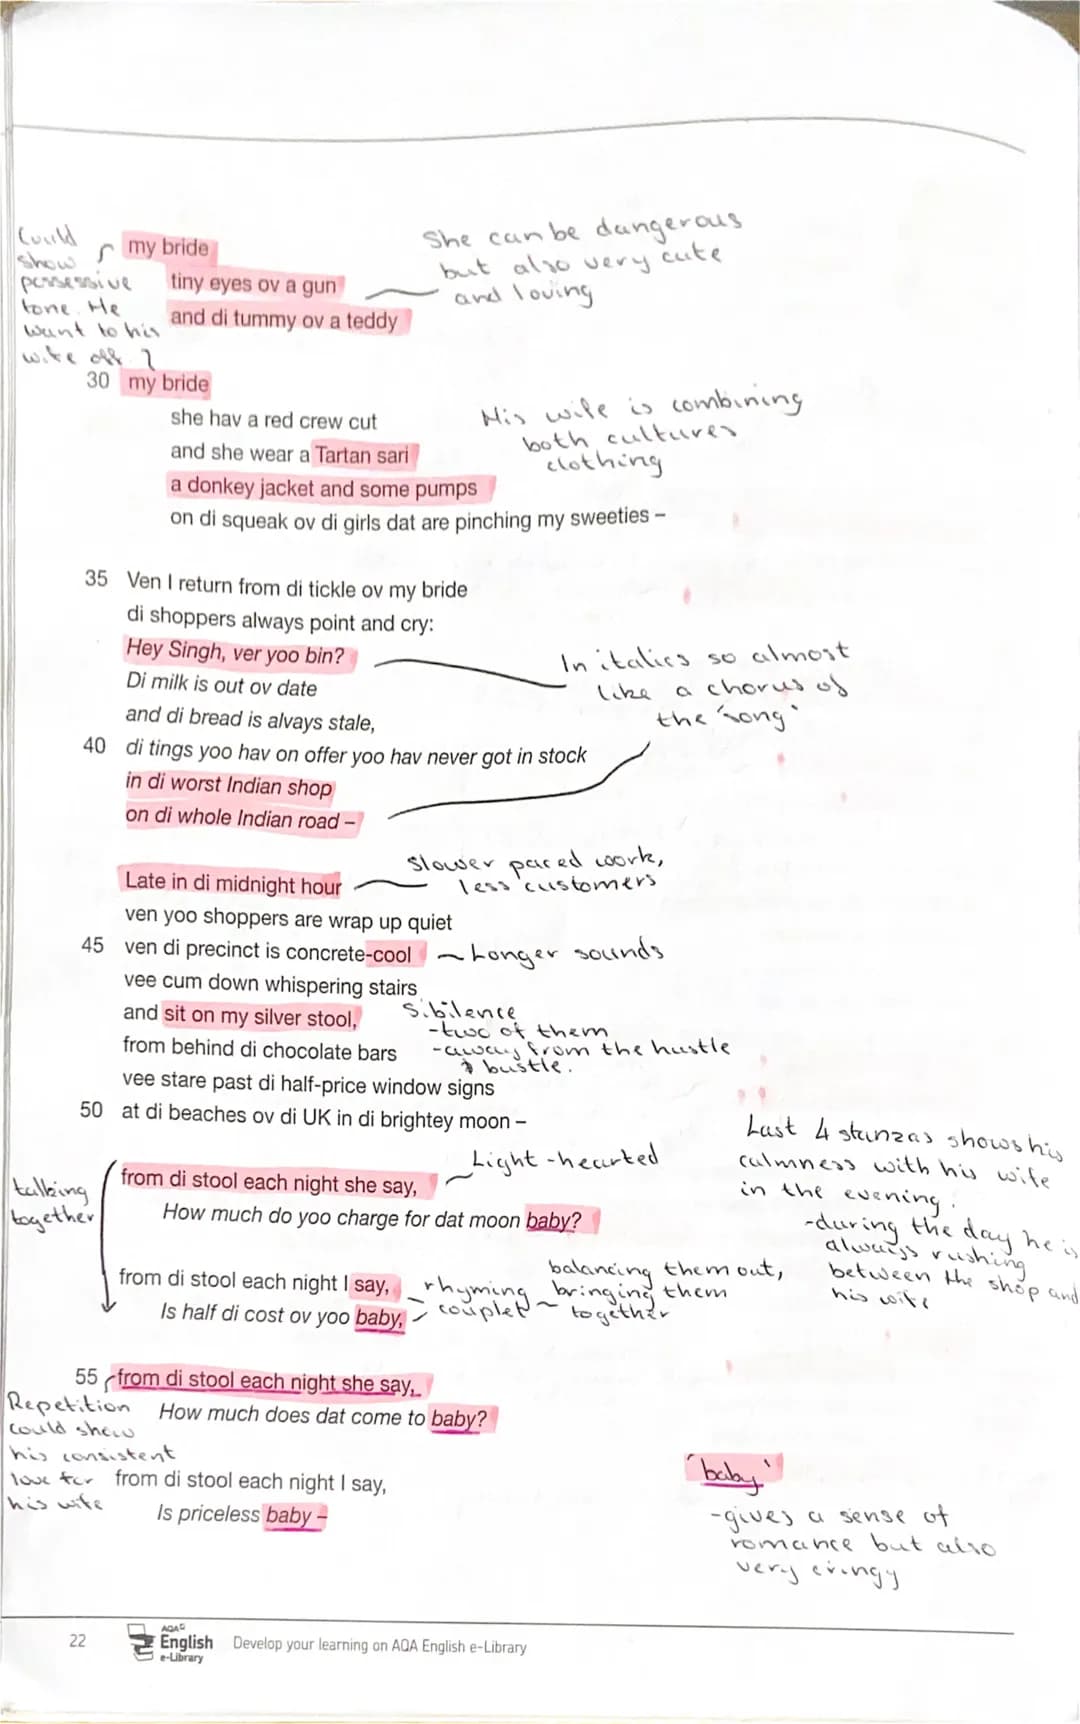 Could
show
possessive
tone. He
want to his
wife off ?
my bride
tiny eyes ov a gun
and di tummy ov a teddy
She can be dangerous
but also very cute
and loving
30 my bride
she hav a red crew cut
and she wear a Tartan sari
a donkey jacket and some pumps
on di squeak ov di girls dat are pinching my sweeties –
His wife is combining
both cultures
clothing
35 Ven I return from di tickle ov my bride
di shoppers always point and cry:
Hey Singh, ver yoo bin?
Di milk is out ov date
and di bread is alvays stale,
40 di tings yoo hav on offer yoo hav never got in stock
in di worst Indian shop
on di whole Indian road –
In italics so almost
like a chorus of
the 'song'
Late in di midnight hour
ven yoo shoppers are wrap up quiet
45 ven di precinct is concrete-cool
vee cum down whispering stairs
and sit on my silver stool,
from behind di chocolate bars
vee stare past di half-price window signs
50 at di beaches ov di UK in di brightey moon –
Slower paced work,
less customers
Longer sounds
Sibilence
-two of them
-away from the hustle
& bustle.
from di stool each night she say,
How much do yoo charge for dat moon baby?
Light-hearted
talking
together
from di stool each night I say,
Is half di cost ov yoo baby,
rhyming
couplet
balancing them out,
bringing them
together
Last 4 stanzas shows his
calmness with his wife
in the evening.
-during the day he is
always rushing
between the shop and
his wife
55 from di stool each night she say,
How much does dat come to baby?
from di stool each night I say,
Is priceless baby –
Repetition
could show
his consistent
love for
his wife
'baby'
-gives a sense of
romance but also
very cringy
22
AQA
English
e-Library
Develop your learning on AQA English e-Library